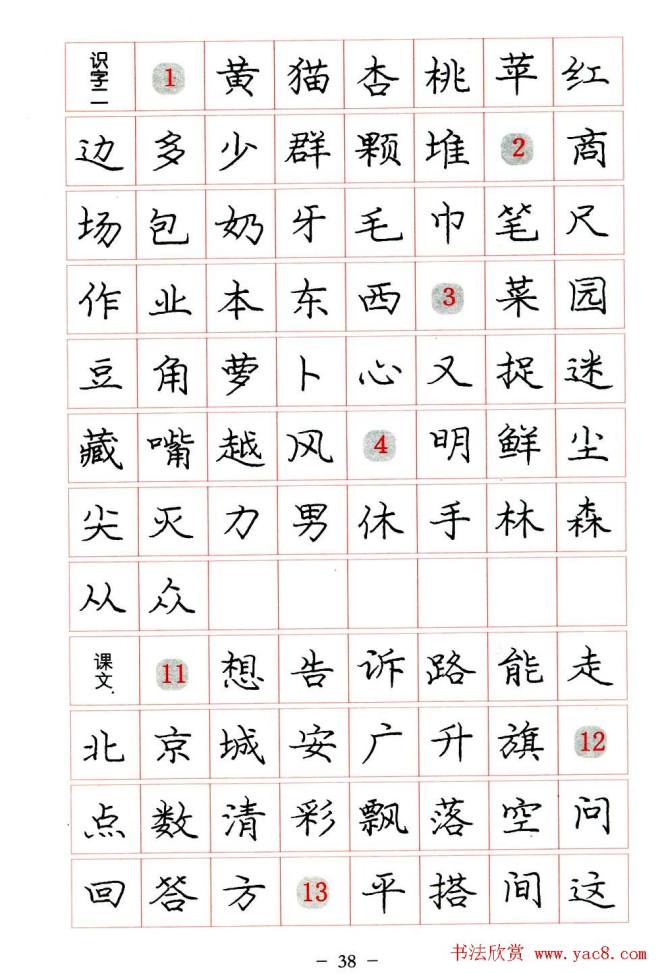 识字二 1 黄 猫 杏 桃 苹 红
边 多 少 群 颗 堆 2 商
场 包 奶 牙 毛 巾 笔 尺
作 业 本 东 西 3 菜 园
豆 角 萝 卜 心 又 捉 迷
藏 嘴 越 风 4 明 鲜 尘
尖 灭 力 男 休 手 林 森
从 众
课文 11 想 告 诉 路 能 走
北 京 城 安 广 升 旗 12
点 数 清 彩 飘 落 空 问
回 答 方 13 平 搭 间 这
- 38 -
书法欣赏 www.yac8.com